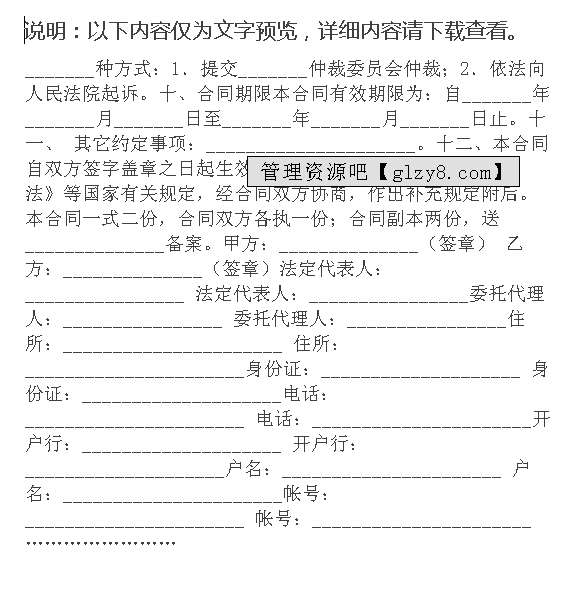 说明：以下内容仅为文字预览，详细内容请下载查看。
_______种方式：1．提交_______仲裁委员会仲裁；2．依法向
人民法院起诉。十、合同期限本合同有效期限为：自_______年
_______月_______日至_______年_______月_______日止。十
一、 其它约定事项：_____________________。十二、本合同
自双方签字盖章之日起生效
管理资源吧【glzy8.com】
法》等国家有关规定，经合同双方协商，作出补充规定附后。
本合同一式二份，合同双方各执一份；合同副本两份，送
______________备案。甲方：______________（签章） 乙
方：______________（签章）法定代表人：
________________ 法定代表人：________________委托代理
人：________________ 委托代理人：________________住
所：______________________ 住所：
______________________身份证：____________________ 身
份证：____________________电话：
______________________ 电话：______________________开
户行：____________________ 开户行：
____________________户名：______________________ 户
名：______________________帐号：
______________________ 帐号：______________________
……………………